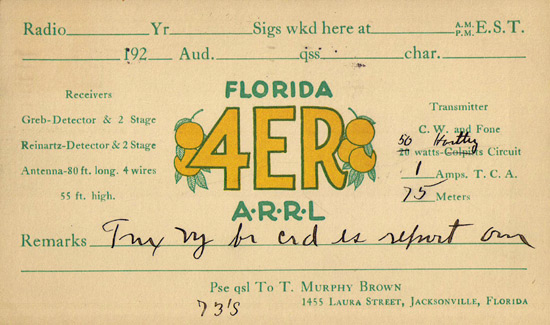 Radio Yr Sigs wkd here at A.M. P.M. E.S.T.
192 Aud. qss char.
Receivers
Greb-Detector & 2 Stage
Reinartz-Detector & 2 Stage
Antenna-80 ft. long. 4 wires
55 ft. high.
FLORIDA
4ER
A·R·R·L
Transmitter
C. W. and Fone
50 Hartly
20 watts-Colpitts Circuit
1 Amps. T. C. A.
75 Meters
Remarks Tnx vy br crd es report om
Pse qsl To T. Murphy Brown
1455 Laura Street, Jacksonville, Florida
73's